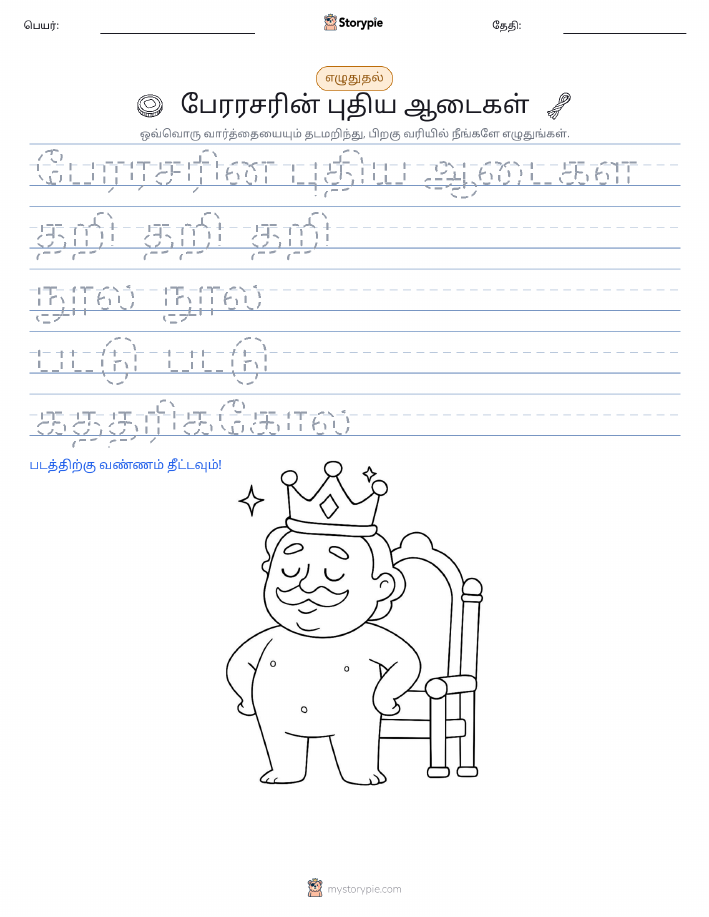 பெயர்:
Storypie
தேதி:
எழுதுதல்
பேரரசரின் புதிய ஆடைகள்
ஒவ்வொரு வார்த்தையையும் தடமறிந்து, பிறகு வரியில் நீங்களே எழுதுங்கள்.
பேரரசரின் புதிய ஆடைகள்
தறி தறி தறி
நூல் நூல்
பட்டு பட்டு
கத்தரிக்கோல்
படத்திற்கு வண்ணம் தீட்டவும்!
mystorypie.com